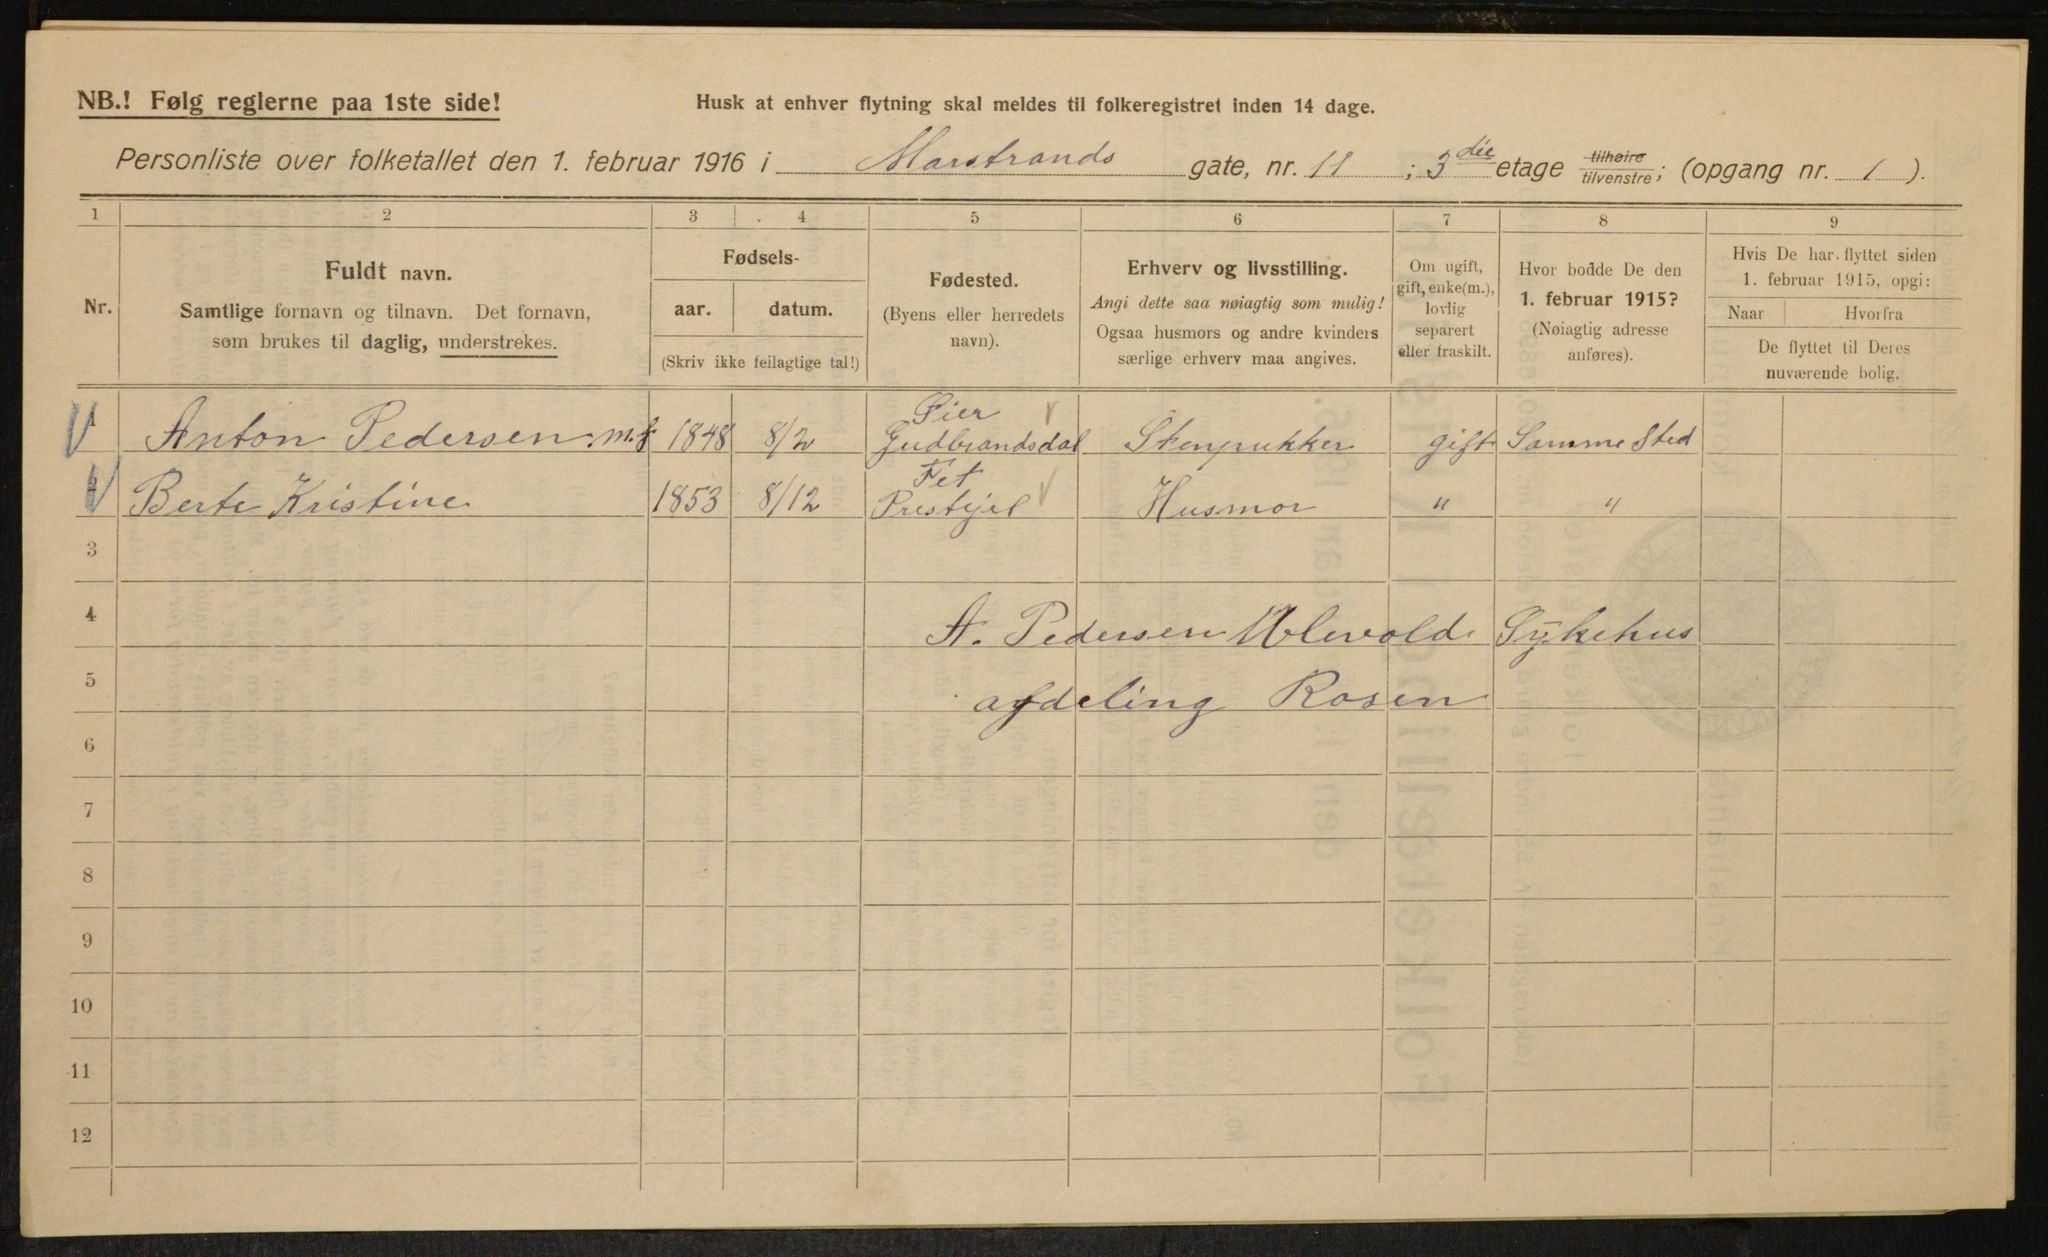 NB.! Følg reglerne paa 1ste side!
Husk at enhver flytning skal meldes til folkeregistret inden 14 dage.
Personliste over folketallet den 1. februar 1916 i Marstrands gate, nr. 11 ; 3 die etage tilhøire tilvenstre; (opgang nr. 1 ).
1 2 3 4 5 6 7 8 9
Nr.
Fuldt navn.
Samtlige fornavn og tilnavn. Det fornavn,
som brukes til daglig, understrekes.
Fødsels-
aar. datum.
(Skriv ikke feilagtige tal!)
Fødested.
(Byens eller herredets
navn).
Erhverv og livsstilling.
Angi dette saa nøiagtig som mulig!
Ogsaa husmors og andre kvinders
særlige erhverv maa angives.
Om ugift,
gift, enke(m.),
lovlig
separert
eller fraskilt.
Hvor bodde De den
1. februar 1915?
(Nøiagtig adresse
anføres).
Hvis De har flyttet siden
1. februar 1915, opgi:
Naar Hvorfra
De flyttet til Deres
nuværende bolig.
1 Anton Pedersen m.f 1848 8/2 Øier Gudbrandsdal Stenpukker gift Samme Sted
2 Berte Kristine 1853 8/12 Fet Prestgjel Husmor " "
3
4 A. Pedersen Ulevold Sykehus
5 afdeling Rosen
6
7
8
9
10
11
12